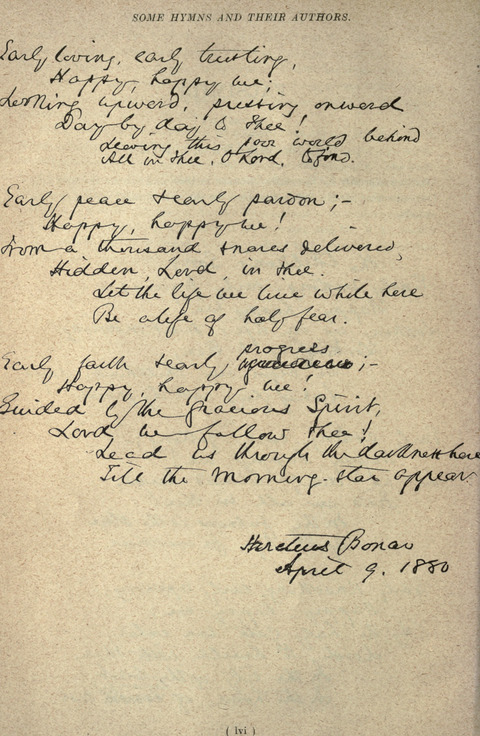 SOME HYMNS AND THEIR AUTHORS.
Early loving, early trusting,
Happy, happy we;
Looking upward, pressing onward
Day by day to Thee!
Leaving this poor world behind
All in Thee, O Lord, to find.
Early peace & early pardon;–
Happy, happy we!
From a thousand snares delivered,
Hidden, Lord, in Thee.
Let the life we live while here
Be a life of holy fear.
progress
Early faith & early ;–
Happy, happy we!
Guided by the gracious Spirit,
Lord we follow Thee!
Lead us through the darkness here
Till the Morning-star appear
Horatius Bonar
April 9. 1880
( lvi )